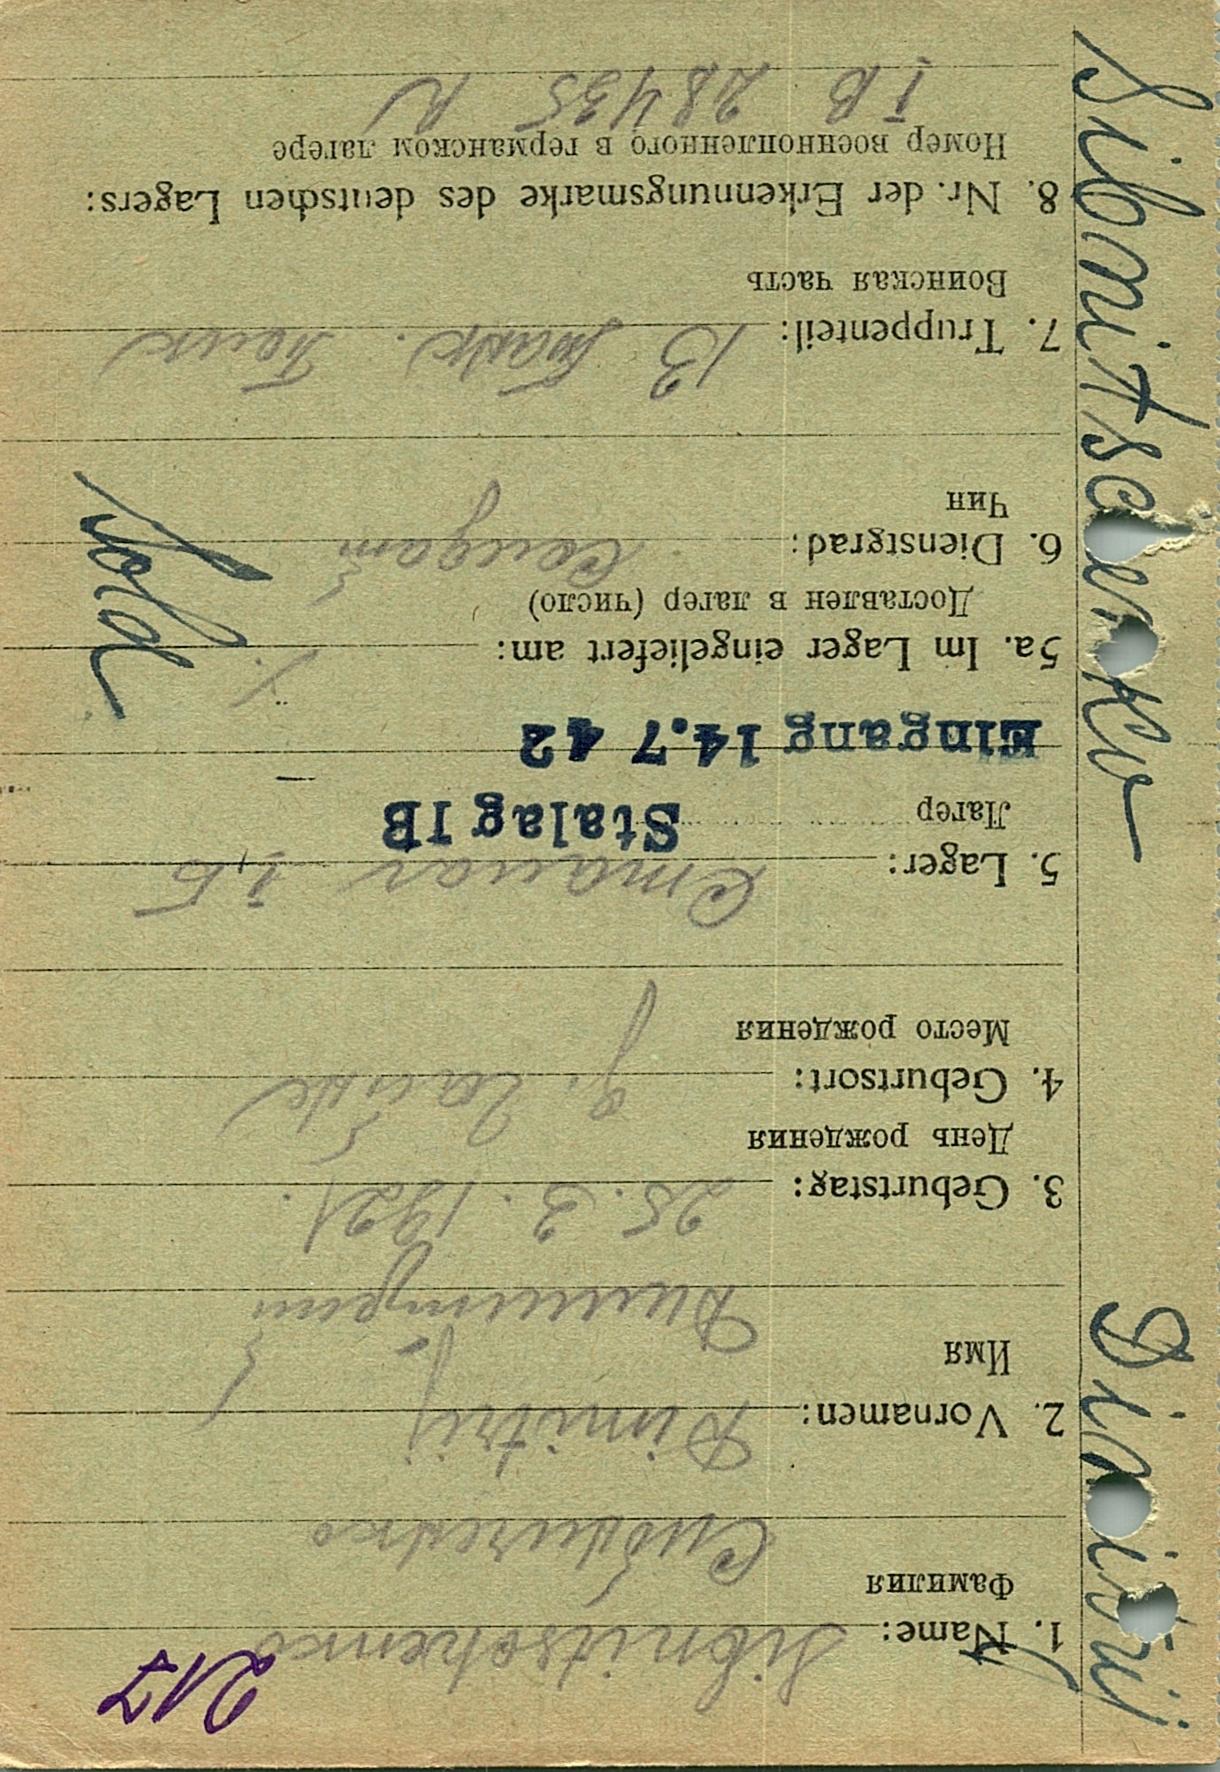 217
1. Name: Sibnitschenko
Фамилия
Сибниченко
2. Vornamen: Dimitrij
Имя
Димитрий
3. Geburtstag: 25. 3. 1921.
День рождения
4. Geburtsort:
Место рождения
5. Lager: Сталаг I, Б
Лагер
Stalag IB
Eingang 14.7 42
5a. Im Lager eingeliefert am:
Доставлен в лагер (число)
6. Dienstgrad: Солдат
Чин
Sold
7. Truppenteil: 13 танк. Полк
Воинская часть
8. Nr. der Erkennungsmarke des deutschen Lagers:
Номер военнопленного в германском лагере
I B 28435
Dimitrij Sibnitschenko